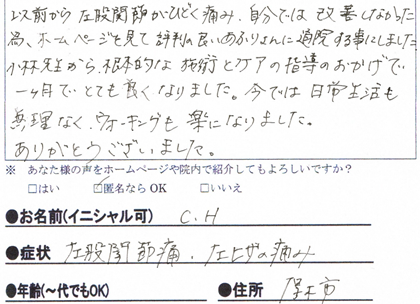 以前から左股関節がひどく痛み、自分では改善しなかった
為、ホームページを見て評判の良いあふりさんに通院する事にしました
小林先生から、根本的な施術とケアの指導のおかげで、
一ヶ月でとても良くなりました。今では日常生活も
無理なく、ウォーキングも楽になりました。
ありがとうございました。
※ あなた様の声をホームページや院内で紹介してもよろしいですか？
□はい ☑匿名なら OK □いいえ
●お名前(イニシャル可) C.H
●症状 左股関節痛、左ヒザの痛み
●年齢(～代でもOK) ●住所 厚木市